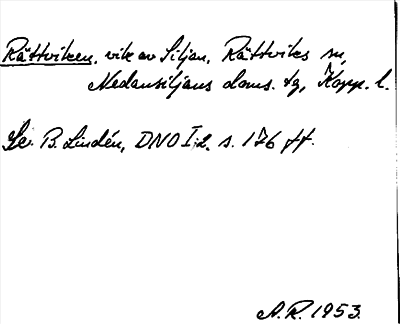 Rättviken, vik av Siljan, Rättviks sn,
Nedansiljans doms. tg, Kopp. l.
Se B. Lindén, DNO I:2. s. 176 ff.
A.R. 1953.